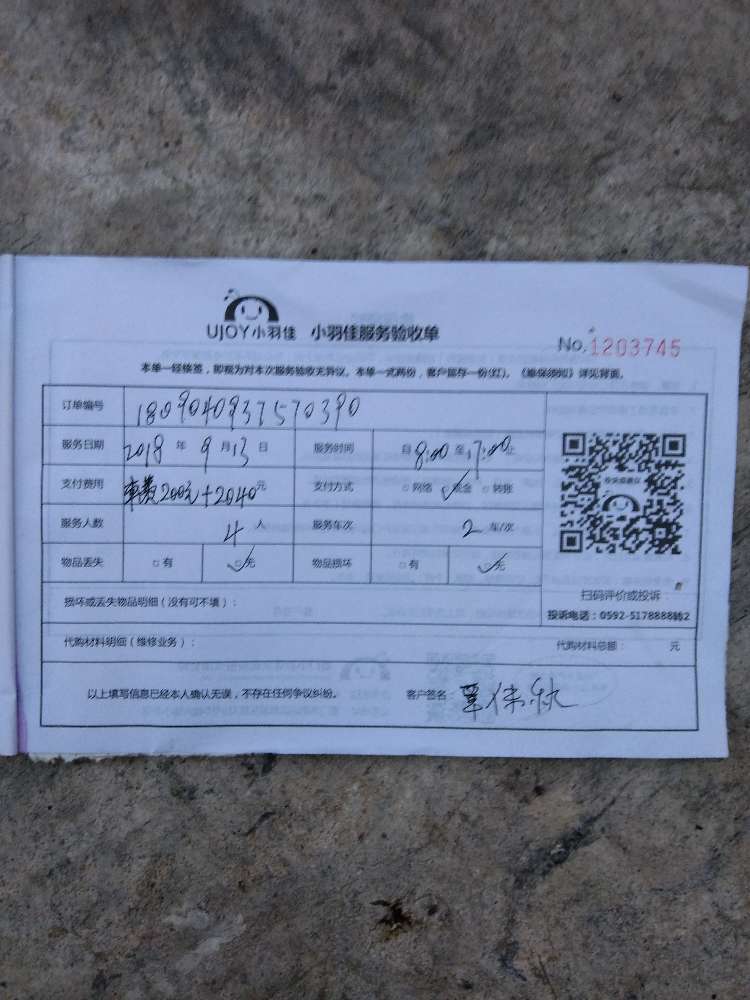 UJOY小羽佳 小羽佳服务验收单
No. 1203745
本单一经接签，即视为对本次服务验收无异议。本单一式两份，客户留存一份(红)。《维保须知》详见背面。
订单编号 1809040937570390
服务日期 2018 年 9 月 13 日 服务时间 自 8:00 至 17:00 止
支付费用 车费200元+2040元 支付方式 □网络 ☑现金 □转账
服务人数 4 人 服务车次 2 车/次
物品丢失 □有 ☑无 物品损坏 □有 ☑无
扫码评价或投诉
投诉电话：0592-5178888转2
损坏或丢失物品明细（没有可不填）：
代购材料明细（维修业务）： 代购材料总额： 元
以上填写信息已经本人确认无误，不存在任何争议纠纷。 客户签名：